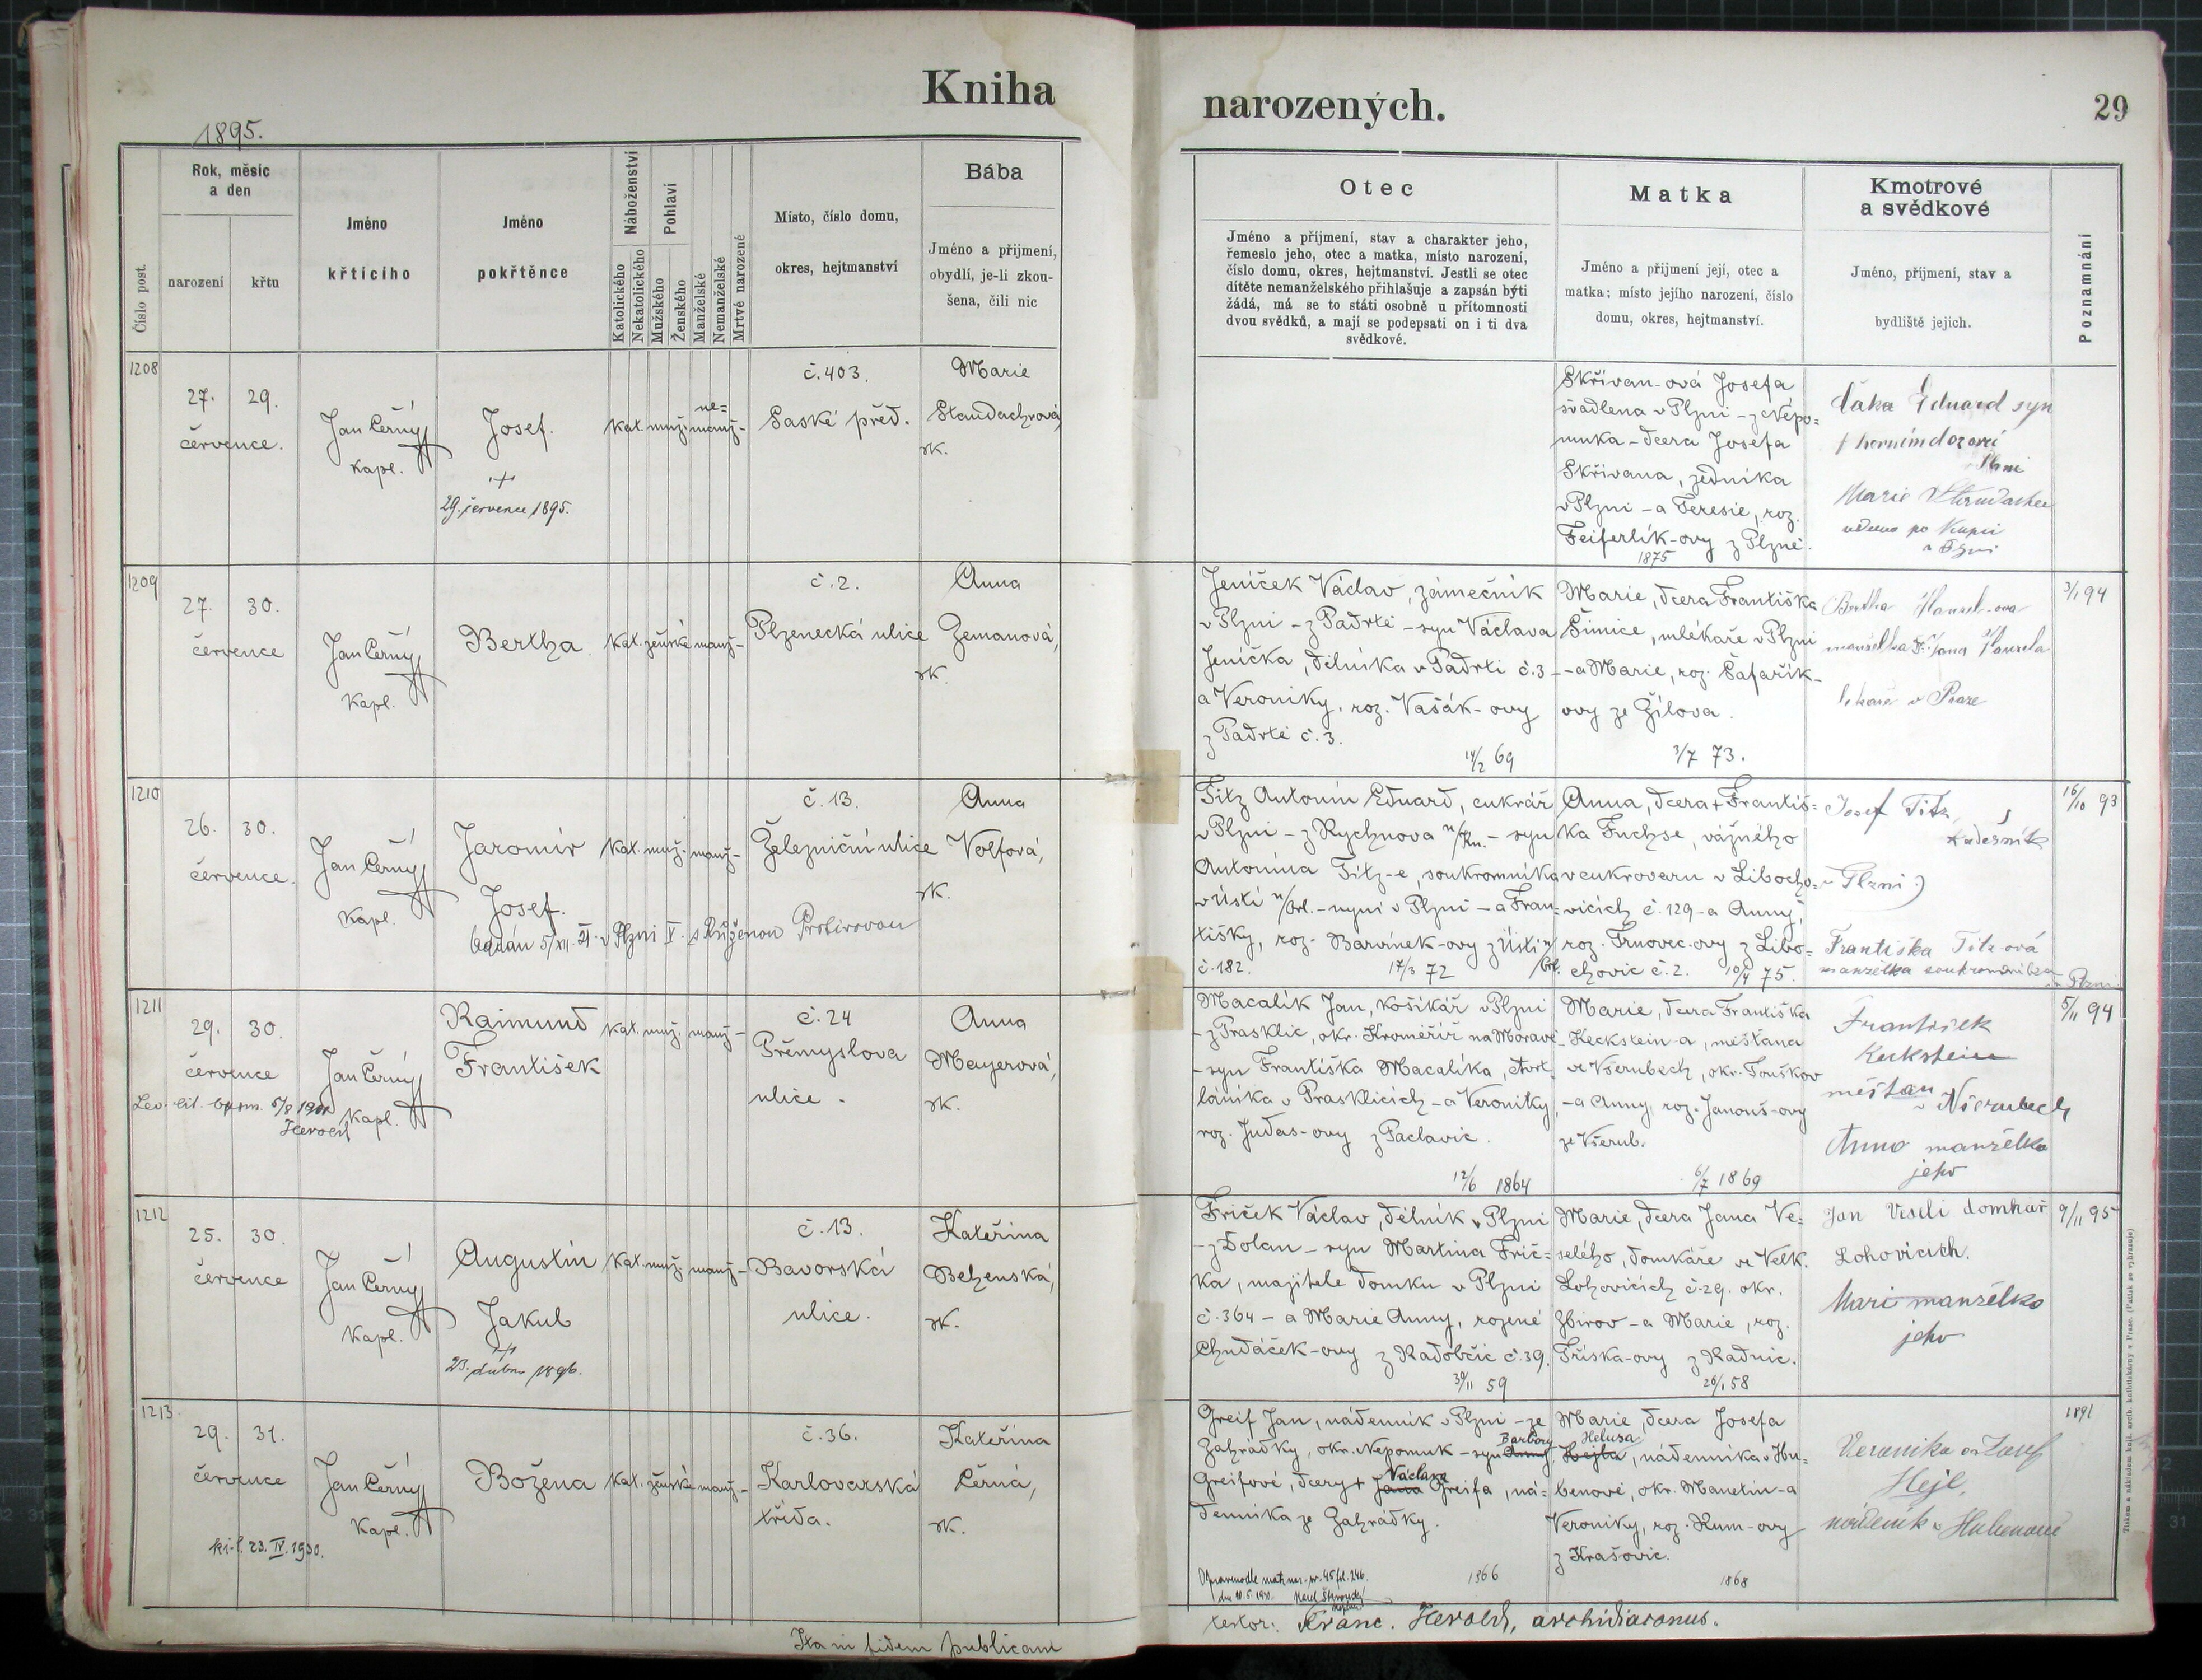 Kniha
narozených.
29
1895.
Číslo post.
Rok, měsíc
a den
narození
křtu
Jméno
křtícího
Jméno
pokřtěnce
Náboženství
Katolického
Nekatolického
Pohlaví
Mužského
Ženského
Manželské
Nemanželské
Mrtvě narozené
Místo, číslo domu,
okres, hejtmanství
Bába
Jméno a přijmení,
obydlí, je-li zkou-
šena, čili nic
Otec
Jméno a příjmení, stav a charakter jeho,
řemeslo jeho, otec a matka, místo narození,
číslo domu, okres, hejtmanství. Jestli se otec
dítěte nemanželského přihlašuje a zapsán býti
žádá, má se to státi osobně u přítomnosti
dvou svědků, a mají se podepsati on i ti dva
svědkové.
Matka
Jméno a přijmení její, otec a
matka; místo jejího narození, číslo
domu, okres, hejtmanství.
Kmotrové
a svědkové
Jméno, příjmení, stav a
bydliště jejich.
Poznamnání
1208
27. 29.
července.
Jan Černý
kapl.
Josef.
+
29. července 1895.
kat. muž. ne=
manž-
č. 403.
Saské před.
Marie
Standachrová
zk.
Skřivan-ová Josefa
švadlena v Plzni - z Nepo=
muka - dcera Josefa
Skřivana, zedníka
v Plzni - a Teresie, roz.
Feiferlík-ovy z Plzně.
1875
Eduard syn
Marie
1209
27. 30.
července
Jan Černý
kapl.
Bertha
kat. ženské manž-
č. 2.
Plzenecká ulice
Anna
Zemanová,
zk.
Jeníček Václav, zámečník
v Plzni - z Padrtě - syn Václava
Jeníčka, dělníka v Padrti č. 3 -
a Veroniky, roz. Vašák-ovy
z Padrtě č. 3.
14/2 69
Marie, dcera Františka
Šimice, mlékaře v Plzni
- a Marie, roz. Šafařík-
ovy ze Žilova.
3/7 73.
Bertha Hansel-ova
manželka Hansela
lékaře v Praze
3/1 94
1210
26. 30.
července.
Jan Černý
kapl.
Jaromír
Josef.
oddán 5/XII. 21. v Plzni V. s Růženou Protivovou
kat. muž. manž-
č. 13.
Železniční ulice
Anna
Volfová,
zk.
Titz Antonín Eduard, cukrář
v Plzni - z Rychnova n/Kn. - syn
Antonína Titz-e, soukromníka
v Ústí n/Orl. - nyní v Plzni - a Fran=
tišky, roz. Barvínek-ovy z Ústí n/Orl.
č. 182.
17/3 72
Anna, dcera + Františ=
ka Fuchse, vážného
v cukrovaru v Libocho=
vicích č. 129 - a Anny,
roz. Trnovec-ovy z Libo=
chovic č. 2. 10/4 75.
Josef Titz
kadeřník
v Plzni
Františka Titz-ová
manželka soukromníka
v Plzni
16/10 93
1211
29. 30.
července
Jan Černý
kapl.
Herold
Raimund
František
kat. muž. manž-
č. 24
Přemyslova
ulice -
Anna
Mayerová,
zk.
Macalík Jan, košíkář v Plzni
- z Prasklic, okr. Kroměříž na Moravě
- syn Františka Macalíka, čtvrt=
láníka v Prasklicích - a Veroniky,
roz. Judas-ovy z Paclavic.
12/6 1864
Marie, dcera Františka
Keckstein-a, měšťana
ve Všerubech, okr. Touškov
- a Anny, roz. Janouš-ovy
ze Všerub.
6/7 1869
František
Keckstein
měšťan
v Všerubech
Anna manželka
jeho
5/11 94
1212
25. 30.
července
Jan Černý
kapl.
Augustin
Jakub
+
23. dubna 1896.
kat. muž. manž-
č. 13.
Bavorská
ulice.
Kateřina
Behenská,
zk.
Friček Václav, dělník v Plzni
- z Dolan - syn Martina Frič=
ka, majitele domku v Plzni
č. 364 - a Marie Anny, rozené
Chudáček-ovy z Radobčic č. 39.
30/11 59
Marie, dcera Jana Ve=
selého, domkáře ve Velk.
Lohovicích č. 29. okr.
Zbirov - a Marie, roz.
Tříska-ovy z Radnic.
26/1 58
Jan Veseli domkář
Lohovicich.
Mari manželko
jeho
9/11 95
1213
29. 31.
července
Jan Černý
kapl.
23. IV. 1930.
Božena
kat. ženské manž-
č. 36.
Karlovarská
třída.
Kateřina
Černá,
zk.
Greif Jan, nádenník v Plzni - ze
Zahrádky, okr. Nepomuk - syn Anny Barbory
Greifové, dcery + Jana Václava Greifa, ná=
denníka ze Zahrádky.
1866
Marie, dcera Josefa
Hejla Helusa, nádenníka v Hu=
benově, okr. Manetín - a
Veroniky, roz. Kum-ovy
z Krašovic.
1868
Veronika a Josef
Hejl,
nádeník v Hubenově
1891
Ita in fidem publicam
testor: Franc. Herold, archidiaconus.